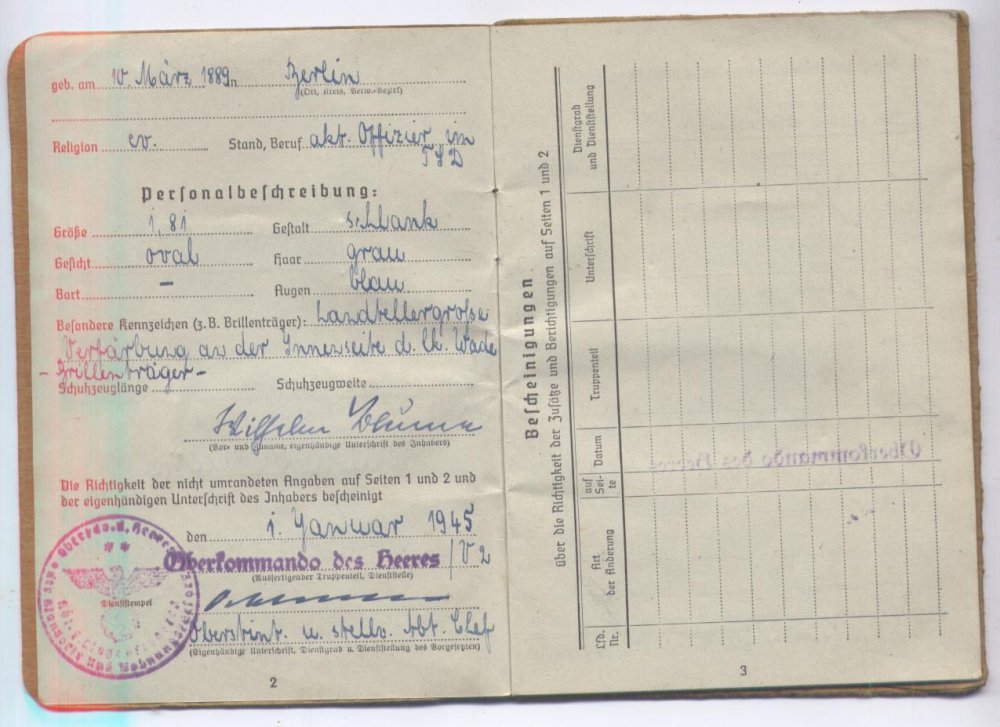 geb. am 10. März 1889 in Berlin
(Ort, Kreis, Verw.-Bezirk)
Religion ev. Stand, Beruf akt. Offizier im
TSD
Personalbeschreibung:
Größe 1,81 Gestalt schlank
Gesicht oval Haar grau
Bart – Augen blau
Besondere Kennzeichen (z.B. Brillenträger): handtellergroße
Verfärbung an der Innenseite d. lk. Wade
– Brillenträger –
Schuhzeuglänge Schuhzeugweite
Wilhelm Blume
(Vor- und Zuname, eigenhändige Unterschrift des Inhabers)
Die Richtigkeit der nicht umrandeten Angaben auf Seiten 1 und 2 und
der eigenhändigen Unterschrift des Inhabers bescheinigt
den 1. Januar 1945
Oberkommando des Heeres /V2
(Ausfertigender Truppenteil, Dienststelle)
Dienststempel
Oberstint. u. stellv. Abt. Chef
(Eigenhändige Unterschrift, Dienstgrad u. Dienststellung des Vorgesetzten)
2
Bescheinigungen
über die Richtigkeit der Zusätze und Berichtigungen auf Seiten 1 und 2
Lfd. Nr.
Art der Änderung
auf Seite
Datum
Truppenteil
Unterschrift
Dienstgrad und Dienststellung
3